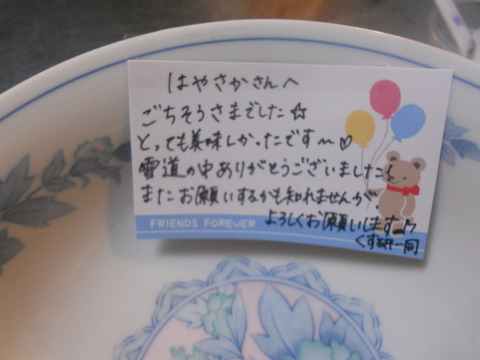 はやさかさんへ
ごちそうさまでした☆
とっても美味しかったです〜♡
雪道の中ありがとうございました!
またお願いするかも知れませんが
よろしくお願いします♪
FRIENDS FOREVER
一同